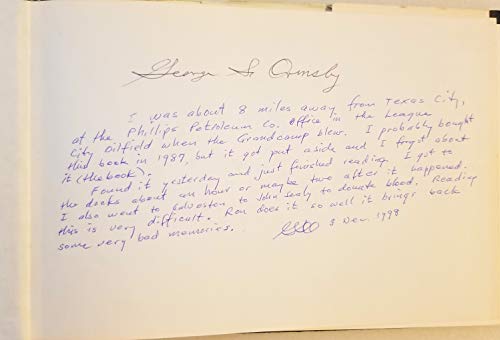 George S. Ormsby
I was about 8 miles away from Texas City,
at the Phillips Petroleum Co. office in the League
City Oilfield when the Grandcamp blew. I probably bought
this book in 1987, but it got put aside and I frgot about
it (the book).
Found it yesterday and just finished reading. I got to
the docks about an hour or maybe two after it happened.
I also went to Galveston to John Sealy to donate blood. Reading
this is very difficult. Ron does it so well it brings back
some very bad memories.
3 Nov 1998